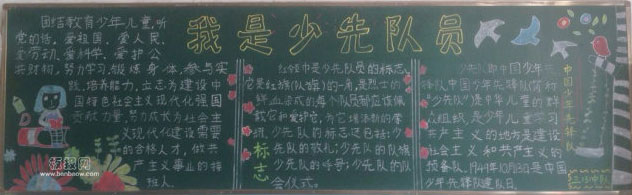 我是少先队员
团结教育少年儿童,听
党的话,爱祖国、爱人民、
爱劳动、爱科学、爱护公
共财物,努力学习,锻炼身体,参与实
践,培养能力,立志为建设中
国特色社会主义现代化强国
贡献力量,努力成长为社会主
义现代化建设需要
的合格人才,做共
产主义事业的接
班人。
红领巾是少先队员的标志,
它是红旗(队旗)的一角,是烈士的
鲜血染成的每个队员都应该佩
戴它和爱护它,为它增添新的荣
誉。少先队的标志还包括:少
先队的敬礼;少先队的队旗,
少先队的呼号;少先队的队
会仪式。
标志
少先队即中国少年先
锋队中国少年先锋队(简称
少先队)是中年儿童的群
众组织,是少年儿童学习
共产主义的地方是建设
社会主义和共产主义的
预备队。1949年10月13日是中国
少年先锋队建队日
中国少年先锋队
板报网
www.banbaow.com